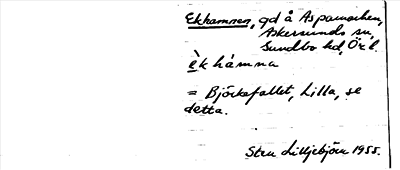 Ekhamnen, gd å Aspamarken,
Askersunds sn,
Sundbo hd, Ör l.
èk hámna
= Björkefallet, Lilla, se
detta.
Sten Lilljebjörn 1955.